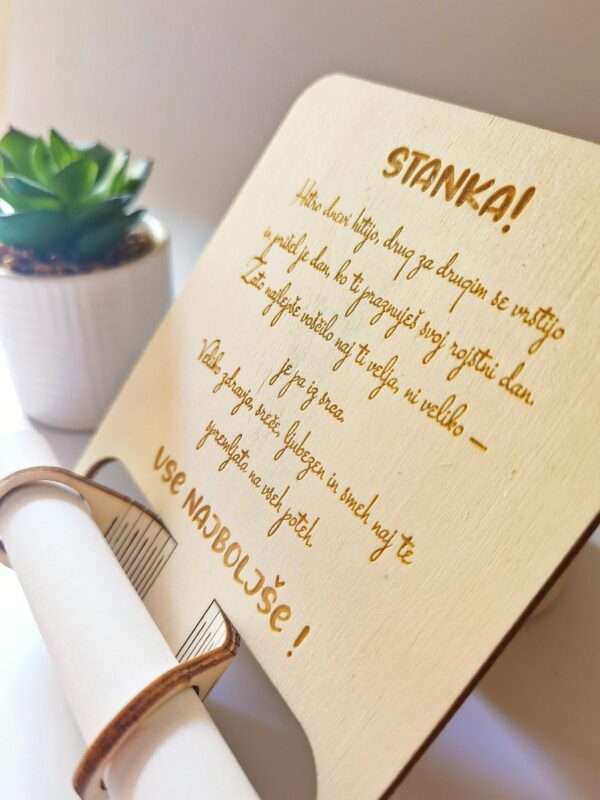 STANKA!
Hitro dnevi hitijo, drug za drugim se vrstijo
in prišel je dan, ko ti praznuješ svoj rojstni dan.
Zato najlepše voščilo naj ti velja, ni veliko –
je pa iz srca.
Veliko zdravja, sreče, ljubezen in smeh naj te
spremljata na vseh poteh.
VSE NAJBOLJŠE!